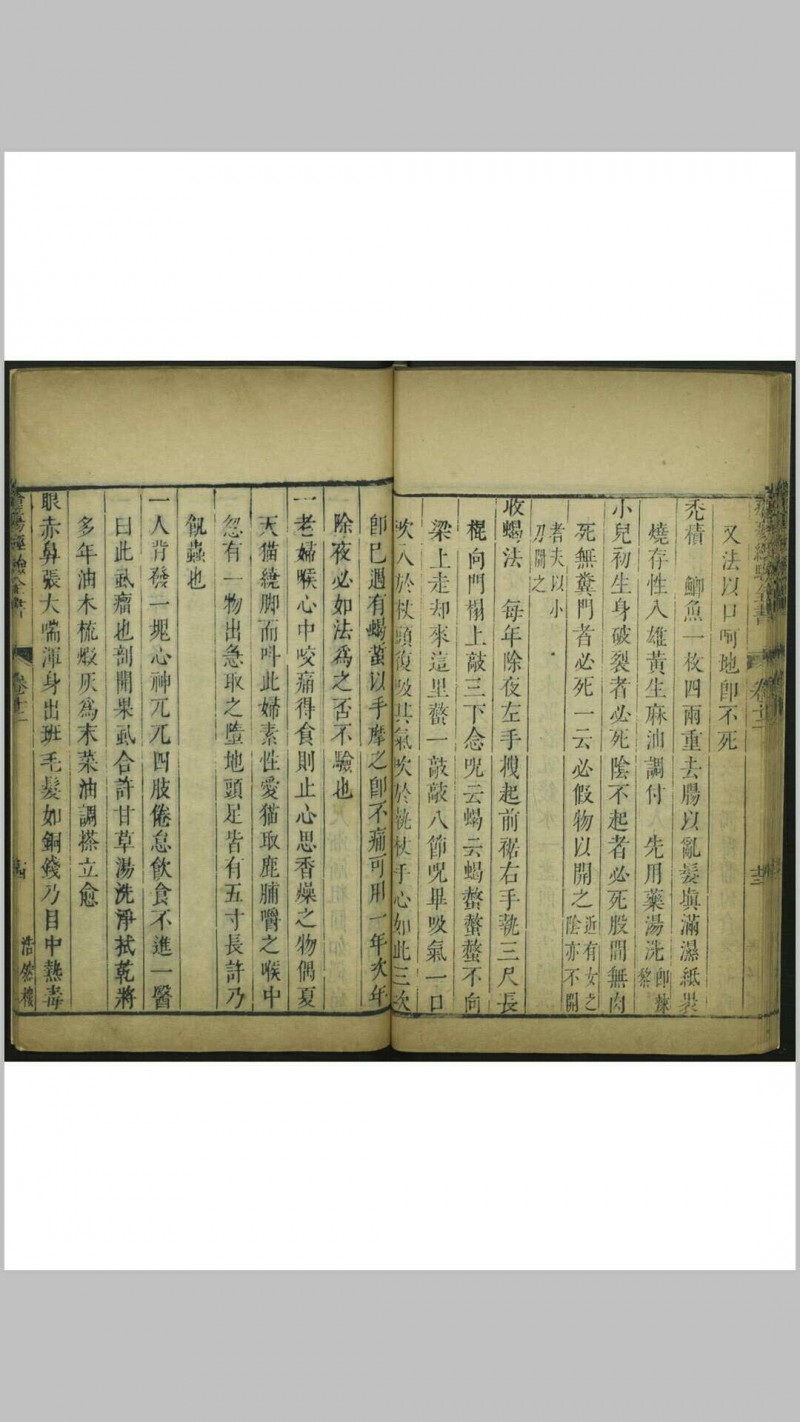 又法以口呵地卽不死
禿積　鯽魚一枚四兩重去腸以亂髮塡滿濕紙裹
燒存性入雄黃生麻油調付　先用藥湯洗卽煉黎
小兒初生身破裂者必死陰不起者必死股間無肉
死無糞門者必死一云必假物以開之近有女之陰亦不開
者夫以小刀開之
收蝎法　每年除夜左手搜起前裾右手執三尺長
棍向門榻上敲三下念咒云蝎云蝎螫螫螫不向
梁上走却來這里螫一敲敲八節咒畢吸氣一口
吹入於杖頭復吸其氣吹於執杖手心如此三次
卽已遇有蝎蠆以手摩之卽不痛可用一年次年
除夜必如法爲之否不驗也
一老婦喉心中咬痛得食則止心思香燥之物偶夏
天猫繞脚而呌此婦素性愛猫取鹿脯嚼之喉中
忽有一物出急取之墮地頭足皆有五寸長許乃
飢蟲也
一人背發一塊心神兀兀四肢倦怠飲食不進一醫
曰此虱瘤也剖開果虱合許甘草湯洗淨拭乾將
多年油木梳煅灰爲末菜油調搽立愈
眼赤鼻張大喘渾身出班毛髮如銅錢乃目中熱毒
卷十二